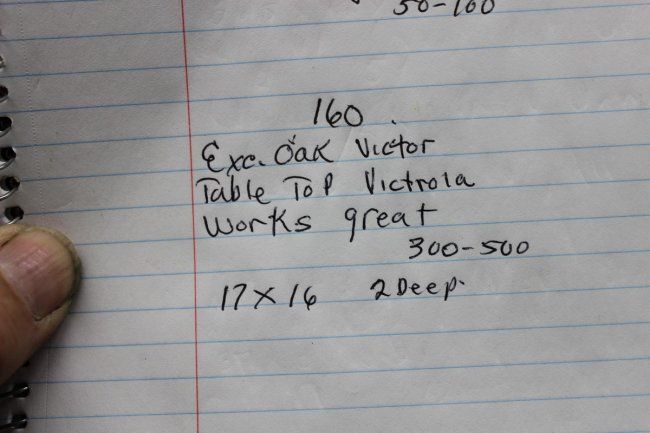 50-100
160.
Exc. Oak Victor
Table Top Victrola
Works great
300-500
17 x 16 2 Deep.